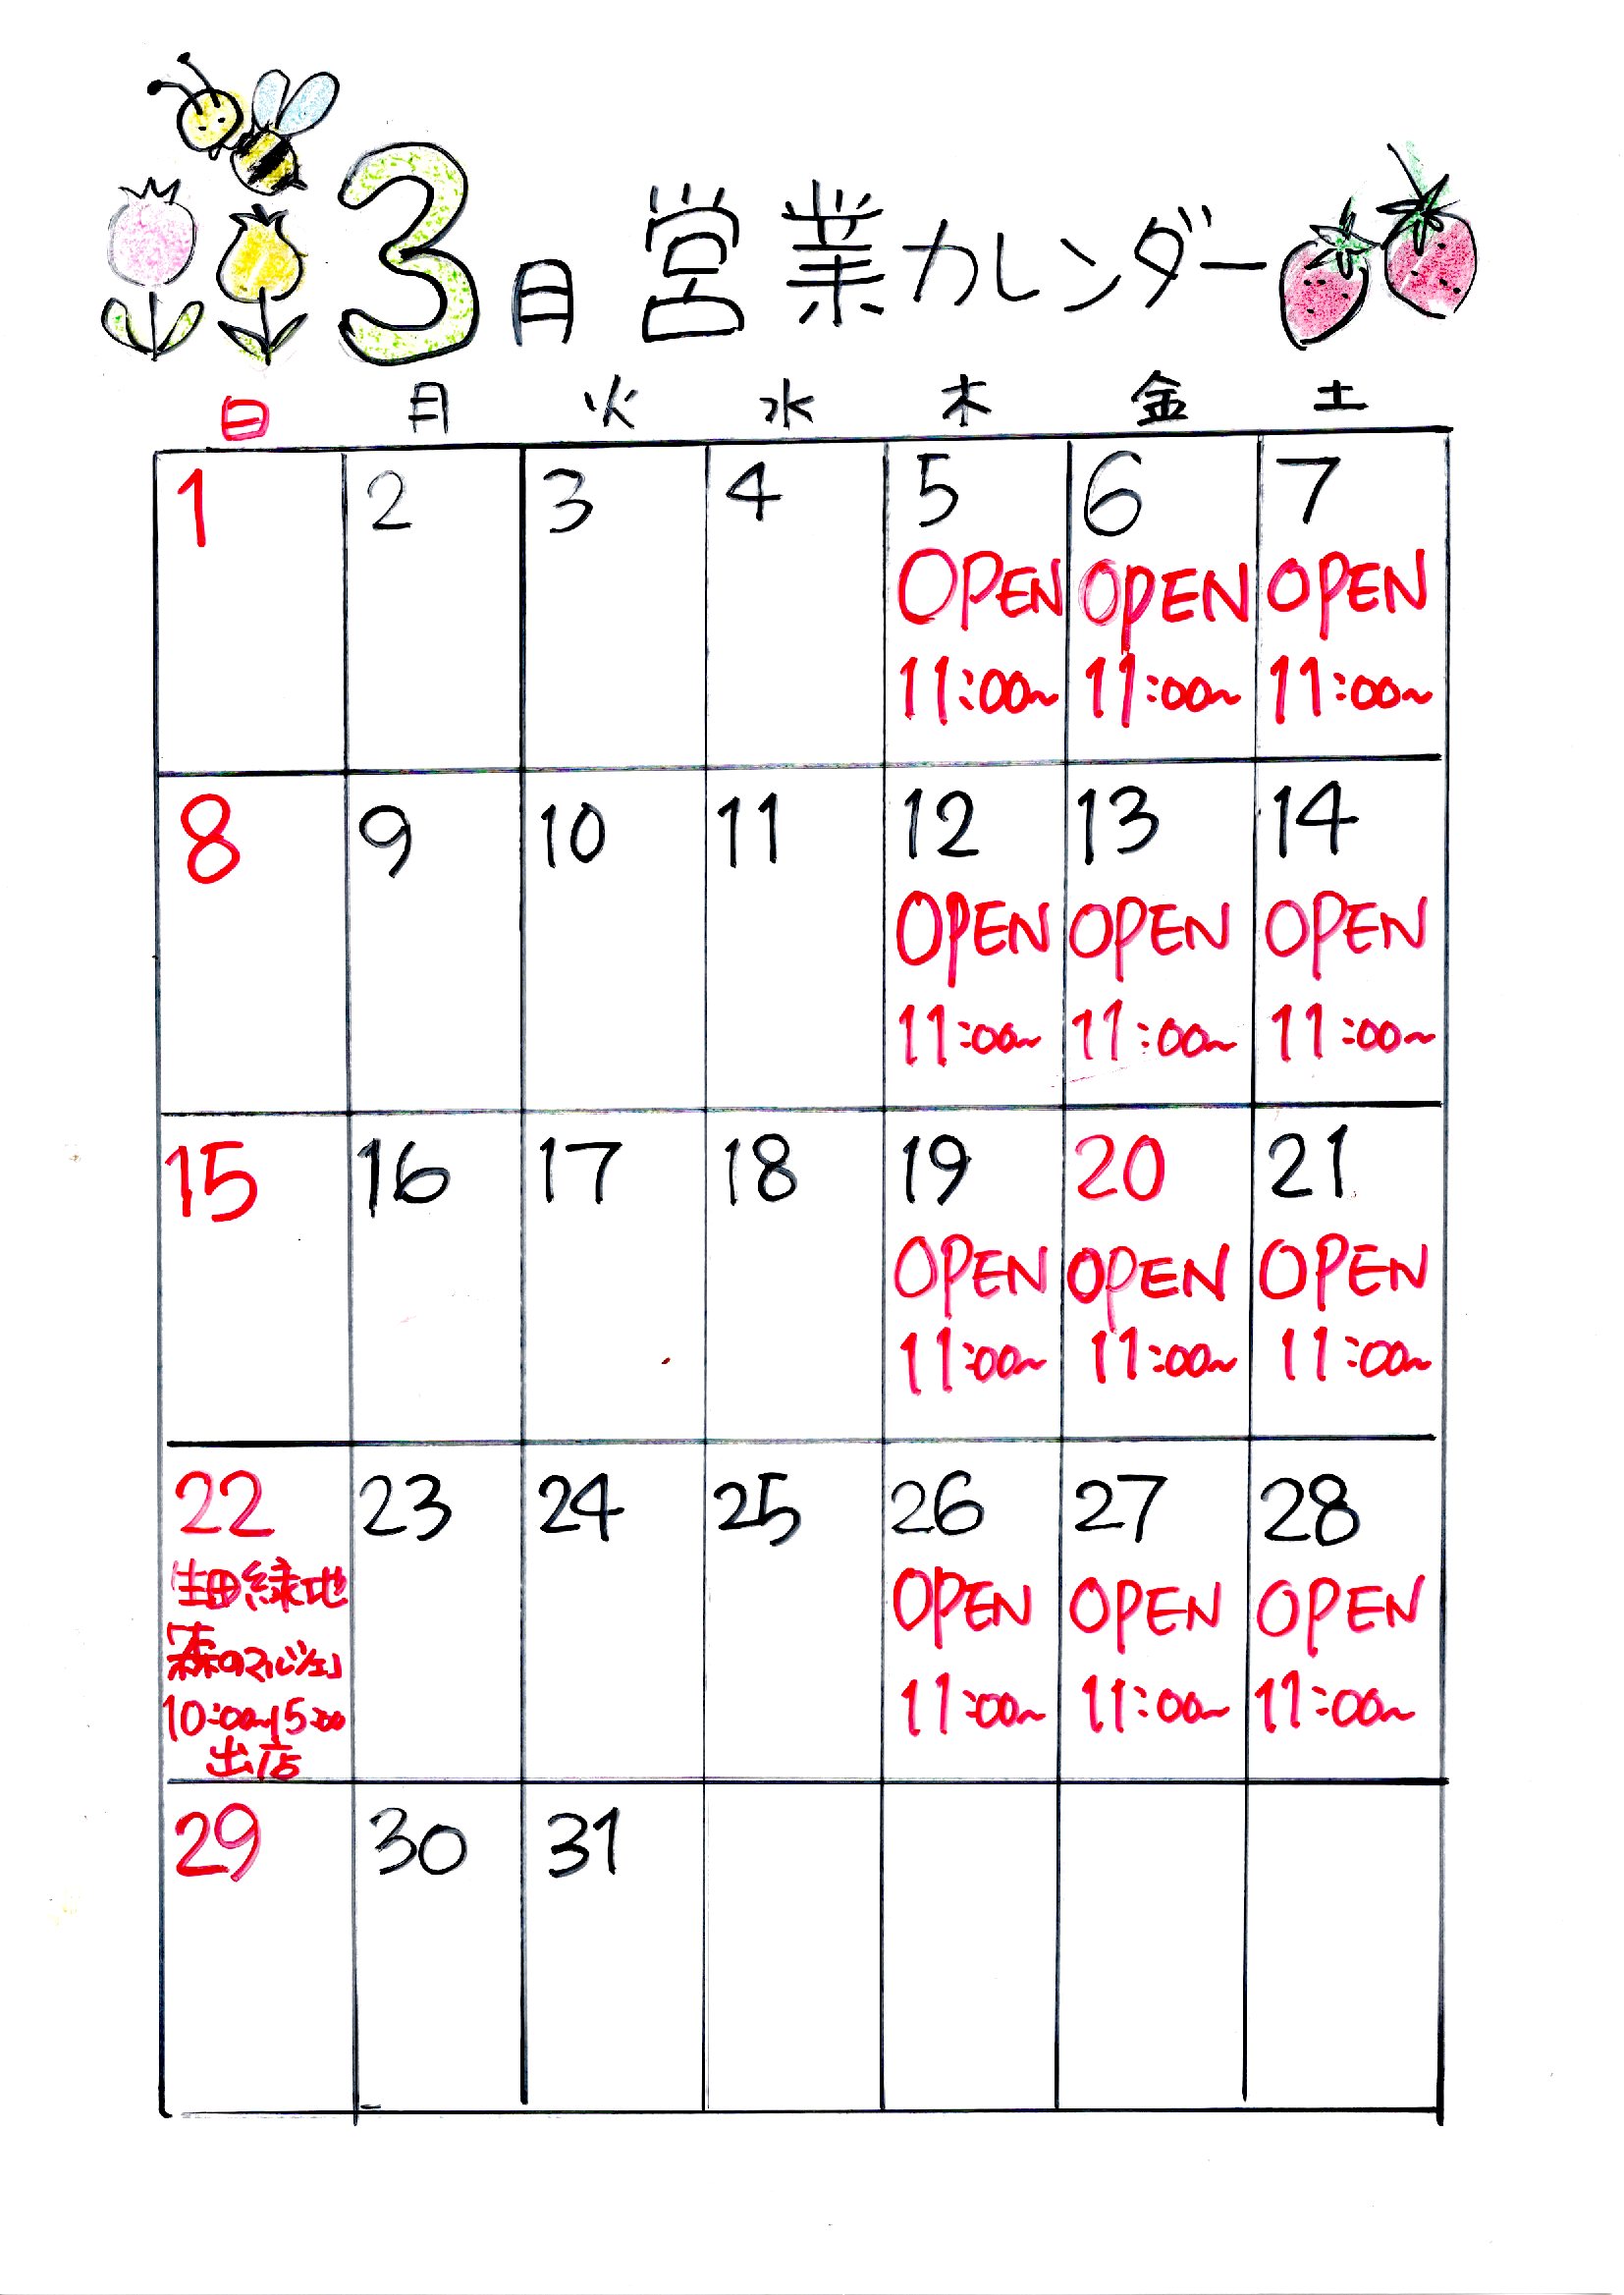 3月 営業カレンダー
日 月 火 水 木 金 土
1 2 3 4 5 6 7
OPEN OPEN OPEN
11:00~ 11:00~ 11:00~
8 9 10 11 12 13 14
OPEN OPEN OPEN
11:00~ 11:00~ 11:00~
15 16 17 18 19 20 21
OPEN OPEN OPEN
11:00~ 11:00~ 11:00~
22 23 24 25 26 27 28
生田緑地 OPEN OPEN OPEN
「森のマルシェ」
10:00~15:00 11:00~ 11:00~ 11:00~
出店
29 30 31